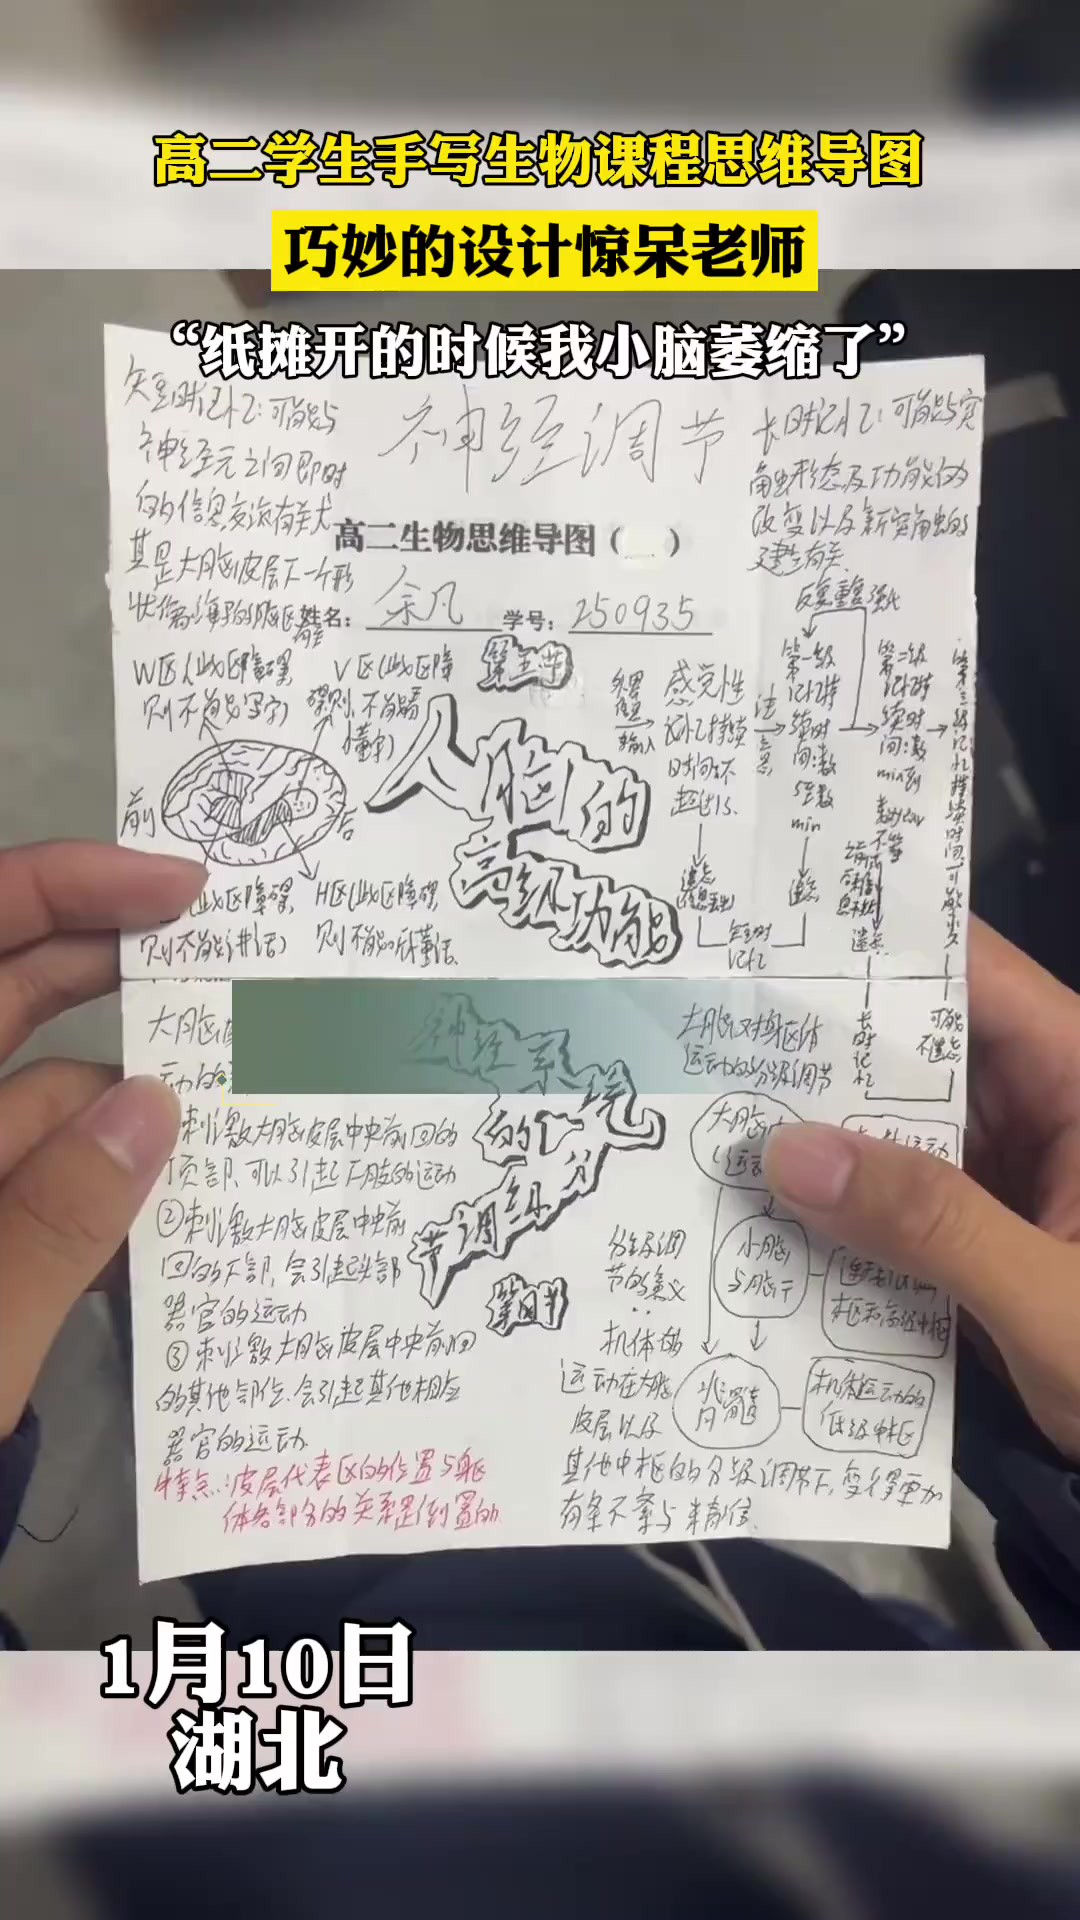 高二学生手写生物课程思维导图
巧妙的设计惊呆老师
“纸摊开的时候我小脑萎缩了”
神经调节
高二生物思维导图( )
姓名：余凡 学号：250935
短时记忆：可能与
神经元之间即时
的信息交流有关尤
其是大脑皮层下一个形
状像海马的脑区有关
长时记忆：可能与突
触形态及功能的
改变以及新突触的
建立有关
W区(此区障碍
则不能写字)
V区(此区障
碍则不能看
懂字)
前
后
(此区障碍
则不能讲话)
H区(此区障碍
则不能听懂话.
第五节
人脑的
高级功能
外界
信息
输入
感觉性
记忆持续
时间：不
超过1s.
注
意
第一级
记忆持
续时
间：数
s至数
min
反复重复强化
第二级
记忆持
续时
间：数
min到
数year
不等
第三级记忆持续时间：可能永久
遗忘
遗忘
遗忘
短时
记忆
长
时
记
忆
可能
不遗忘
神经系统
的分级调节
第四节
大脑皮
运动的
刺激大脑皮层中央前回的
顶部，可以引起下肢的运动
②刺激大脑皮层中央前
回的下部，会引起头部
器官的运动
③刺激大脑皮层中央前回
的其他部位，会引起其他相应
器官的运动
特点：皮层代表区的位置与躯
体各部分的关系是倒置的
大脑对躯体
运动的分级调节
大脑皮
(运动
小脑
与脑干
脊
髓
机体运动的
低级中枢
分级调
节的意义
机体的
运动在大脑
皮层以及
其他中枢的分级调节下，变得更加
有条不紊与精准
1月10日
湖北